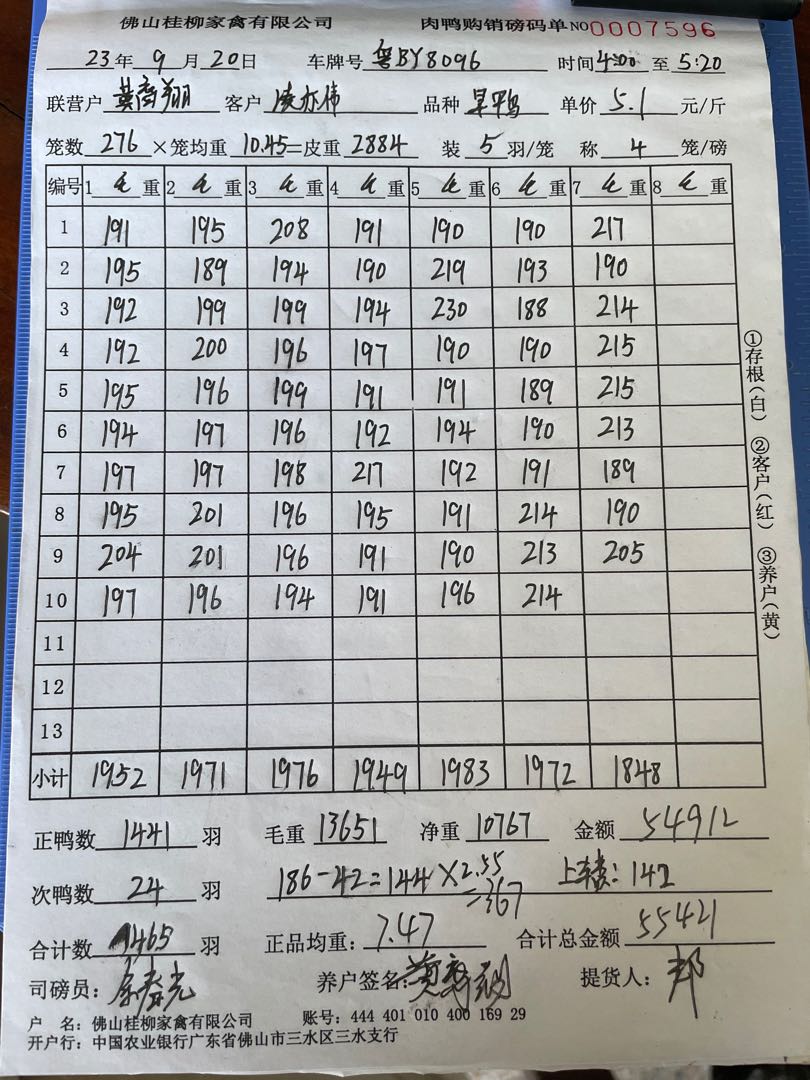 佛山桂柳家禽有限公司 肉鸭购销磅码单NO0007596
23年 9 月 20日 车牌号 粤BY8096 时间4:00 至 5:20
联营户 黄睿翔 客户 凌亦伟 品种 旱鸭 单价 5.1 元/斤
笼数 276 ×笼均重 10.45=皮重 2884 装 5 羽/笼 称 4 笼/磅
编号 1 毛 重 2 毛 重 3 毛 重 4 毛 重 5 毛 重 6 毛 重 7 毛 重 8 毛 重
1 191 195 208 191 190 190 217
2 195 189 194 190 219 193 190
3 192 199 199 194 230 188 214
4 192 200 196 197 190 190 215
5 195 196 199 191 191 189 215
6 194 197 196 192 194 190 213
7 197 197 198 217 192 191 189
8 195 201 196 195 191 214 190
9 204 201 196 191 190 213 205
10 197 196 194 191 196 214
11
12
13
小计 1952 1971 1976 1949 1983 1972 1848
①存根(白) ②客户(红) ③养户(黄)
正鸭数 1441 羽 毛重 13651 净重 10767 金额 54912
次鸭数 24 羽 186-42=144×2.55=367 上车费: 142
合计数 1465 羽 正品均重: 7.47 合计总金额 55421
司磅员: 养户签名: 提货人: 邦
户 名: 佛山桂柳家禽有限公司 账号: 444 401 010 400 169 29
开户行: 中国农业银行广东省佛山市三水区三水支行